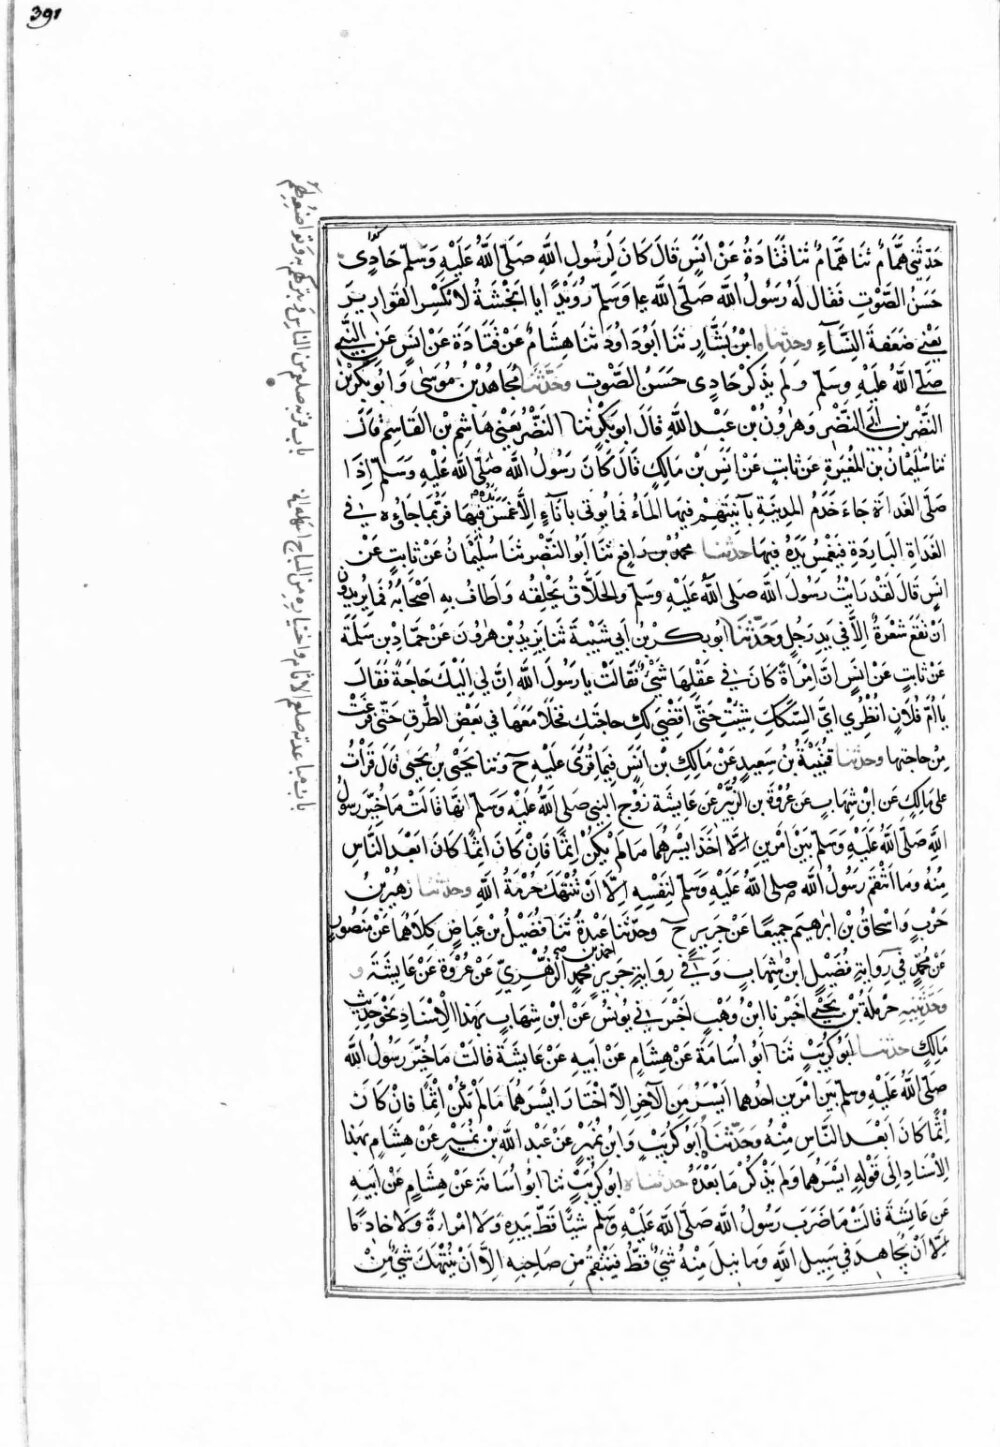 391
حَدَّثَنِي هَمَّامٌ ثنا هَمَّامٌ ثنا قَتَادَةُ عَنْ أَنَسٍ قَالَ كَانَ لِرَسُولِ اللَّهِ صَلَّى اللَّهُ عَلَيْهِ وَسَلَّمَ حَادِي
حَسَنُ الصَّوْتِ فَقَالَ لَهُ رَسُولُ اللَّهِ صَلَّى اللَّهُ عليه وَسَلَّمَ رُوَيْدًا يَا أَنْجَشَةُ لَا تَكْسِرِ الْقَوَارِيرَ
يَعْنِي ضَعَفَةَ النِّسَاءِ وحدثناه ابْنُ بَشَّارٍ ثنا أَبُو دَاوُدَ ثنا هِشَامٌ عَنْ قَتَادَةَ عَنْ أَنَسٍ عَنِ النَّبِيِّ
صَلَّى اللَّهُ عَلَيْهِ وَسَلَّمَ وَلَمْ يَذْكُرْ حَادِي حَسَنُ الصَّوْتِ وحَدَّثَنَا مُجَاهِدُ بْنُ مُوسَى وَأَبُو بَكْرِ بْنُ
النَّضْرِ بْنِ أَبِي النَّضْرِ وَهَرُونُ بْنُ عَبْدِ اللَّهِ قَالَ أَبُو بَكْرٍ ثنا النَّضْرُ يَعْنِي هَاشِمَ بْنَ الْقَاسِمِ قَالَ
ثنا سُلَيْمَانُ بْنُ الْمُغِيرَةِ عَنْ ثَابِتٍ عَنْ أَنَسِ بْنِ مَالِكٍ قَالَ كَانَ رَسُولُ اللَّهِ صَلَّى اللَّهُ عَلَيْهِ وَسَلَّمَ إِذَا
صَلَّى الْغَدَاةَ جَاءَ خَدَمُ الْمَدِينَةِ بِآنِيَتِهِمْ فِيهَا الْمَاءُ فَمَا يُوتَى بِإِنَاءٍ إِلَّا غَمَسَ يده فِيهَا فَرُبَّمَا جَاءُوهُ فِي
الْغَدَاةِ الْبَارِدَةِ فَيَغْمِسُ يَدَهُ فِيهَا حدثنا محمد بن رَافِعٍ ثنا أَبُو النَّضْرِ ثنا سُلَيْمَانُ عَنْ ثَابِتٍ عَنْ
أَنَسٍ قَالَ لَقَدْ رَأَيْتُ رَسُولَ اللَّهِ صَلَّى اللَّهُ عَلَيْهِ وَسَلَّمَ وَالْحَلَّاقُ يَحْلِقُهُ وَأَطَافَ بِهِ أَصْحَابُهُ فَمَا يُرِيدُونَ
أَنْ تَقَعَ شَعْرَةٌ إِلَّا فِي يَدِ رَجُلٍ وَحَدَّثَنَا أَبُو بَكْرِ بْنُ أَبِي شَيْبَةَ ثنا يَزِيدُ بْنُ هَرُونَ عَنْ حَمَّادِ بْنِ سَلَمَةَ
عَنْ ثَابِتٍ عَنْ أَنَسٍ أَنَّ امْرَأَةً كَانَ فِي عَقْلِهَا شَيْءٌ فَقَالَتْ يَا رَسُولَ اللَّهِ إِنَّ لِي إِلَيْكَ حَاجَةً فَقَالَ
يَا أُمَّ فُلَانٍ انْظُرِي أَيَّ السِّكَكِ شِئْتِ حَتَّى أَقْضِيَ لَكِ حَاجَتَكِ فَخَلَا مَعَهَا فِي بَعْضِ الطُّرُقِ حَتَّى فَرَغَتْ
مِنْ حَاجَتِهَا وحدثنا قُتَيْبَةُ بْنُ سَعِيدٍ عَنْ مَالِكِ بْنِ أَنَسٍ فِيمَا قُرِئَ عَلَيْهِ ح وثنا يَحْيَى بْنُ يَحْيَى قَالَ قَرَأْتُ
عَلَى مَالِكٍ عَنِ ابْنِ شِهَابٍ عَنْ عُرْوَةَ بْنِ الزُّبَيْرِ عَنْ عَايِشَةَ زَوْجِ النبي صَلَّى اللَّهُ عَلَيْهِ وَسَلَّمَ أَنَّهَا قَالَتْ مَا خُيِّرَ رَسُولُ
اللَّهِ صَلَّى اللَّهُ عَلَيْهِ وَسَلَّمَ بَيْنَ أَمْرَيْنِ إِلَّا أَخَذَ أَيْسَرَهُمَا مَا لَمْ يَكُنْ إِثْمًا فَإِنْ كَانَ إِثْمًا كَانَ أَبْعَدَ النَّاسِ
مِنْهُ وَمَا انْتَقَمَ رَسُولُ اللَّهِ صلى اللَّهُ عَلَيْهِ وَسَلَّمَ لِنَفْسِهِ إِلَّا أَنْ تُنْتَهَكَ حُرْمَةُ اللَّهِ وحدثنا زُهَيْرُ بْنُ
حَرْبٍ وَإِسْحَاقُ بْنُ إِبْرَاهِيمَ جَمِيعًا عَنْ جَرِيرٍ ح وحَدَّثَنَا عَبْدَةُ ثنا فُضَيْلُ بْنُ عِيَاضٍ كِلَاهُمَا عَنْ مَنْصُورٍ
عَنْ مُحَمَّدٍ فِي رِوَايَةِ فُضَيْلٍ ابْنِ شِهَابٍ وَفِي رِوَايَةِ جَرِيرٍ مُحَمَّدٍ الزُّهْرِيِّ عَنْ عُرْوَةَ عَنْ عَايِشَةَ و
وحَدَّثَنِيهِ حَرْمَلَةُ بْنُ يَحْيَى أَخْبَرَنَا ابْنُ وَهْبٍ أَخْبَرَنِي يُونُسُ عَنْ ابْنِ شِهَابٍ بِهَذَا الْإِسْنَادِ نَحْوَ حَدِيثِ
مَالِكٍ حدثنا أَبُو كُرَيْبٍ ثنا أَبُو أُسَامَةَ عَنْ هِشَامٍ عَنْ أَبِيهِ عَنْ عَايِشَةَ قَالَتْ مَا خُيِّرَ رَسُولُ اللَّهِ
صَلَّى اللَّهُ عَلَيْهِ وَسَلَّمَ بَيْنَ أَمْرَيْنِ أَحَدُهُمَا أَيْسَرُ مِنَ الْآخَرِ إِلَّا اخْتَارَ أَيْسَرَهُمَا مَا لَمْ يَكُنْ إِثْمًا فَإِنْ كَانَ
إِثْمًا كَانَ أَبْعَدَ النَّاسِ مِنْهُ وَحَدَّثَنَا أَبُو كُرَيْبٍ وَابْنُ نُمَيْرٍ عَنْ عَبْدِ اللَّهِ بْنِ نُمَيْرٍ عَنْ هِشَامٍ بِهَذَا
الْإِسْنَادِ إِلَى قَوْلِهِ أَيْسَرَهُمَا وَلَمْ يَذْكُرْ مَا بَعْدَهُ حدثناه أَبُو كُرَيْبٍ ثنا أَبُو أُسَامَةَ عَنْ هِشَامٍ عَنْ أَبِيهِ
عَنْ عَايِشَةَ قَالَتْ مَا ضَرَبَ رَسُولُ اللَّهِ صَلَّى اللَّهُ عَلَيْهِ وَسَلَّمَ شَيْئًا قَطُّ بِيَدِهِ وَلَا امْرَأَةً وَلَا خَادِمًا
إِلَّا أَنْ يُجَاهِدَ فِي سَبِيلِ اللَّهِ وَمَا نِيلَ مِنْهُ شَيْءٌ قَطُّ فَيَنْتَقِمُ مِنْ صَاحِبِهِ إِلَّا أَنْ يُنْتَهَكَ شَيْءٌ مِنْ
باب قربه صلعم من الناس وتبركهم به وتواضعه لهم
باب مباعدته صلعم الاثام واختياره من المباح اسهله